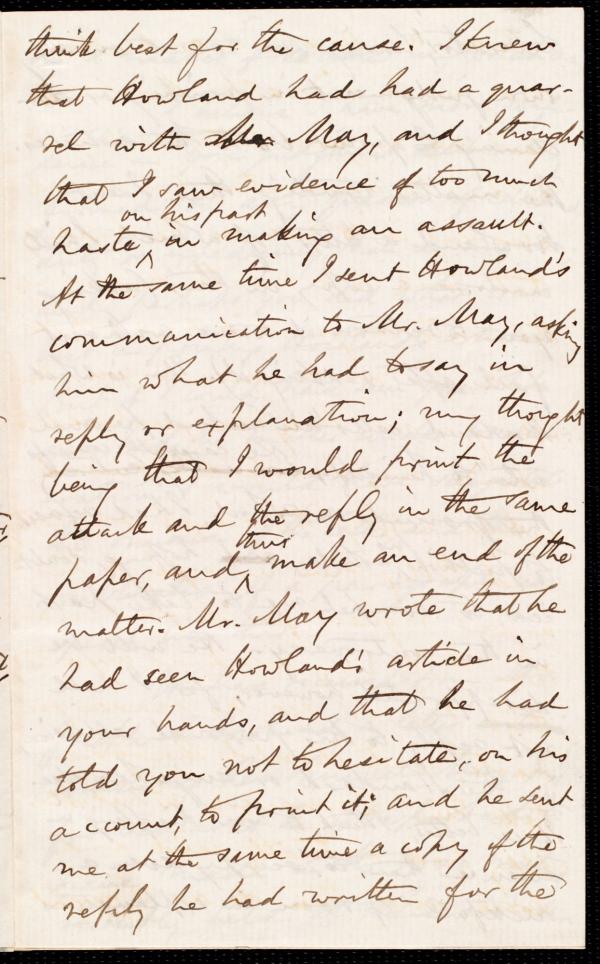 think best for the cause. I knew
that Howland had had a quar-
rel with Mr. May, and I thought
that I saw evidence of too much
on his part
haste, in making an assault.
At the same time I sent Howland's
communication to Mr. May, asking
him what he had to say in
reply or explanation; my thought
being that I would print the
attack and the reply in the same
thus
paper, and make an end of the
matter. Mr. May wrote that he
had seen Howland's article in
your hands, and that he had
told you not to hesitate, on his
account, to print it; and he sent
me at the same time a copy of the
reply he had written for the